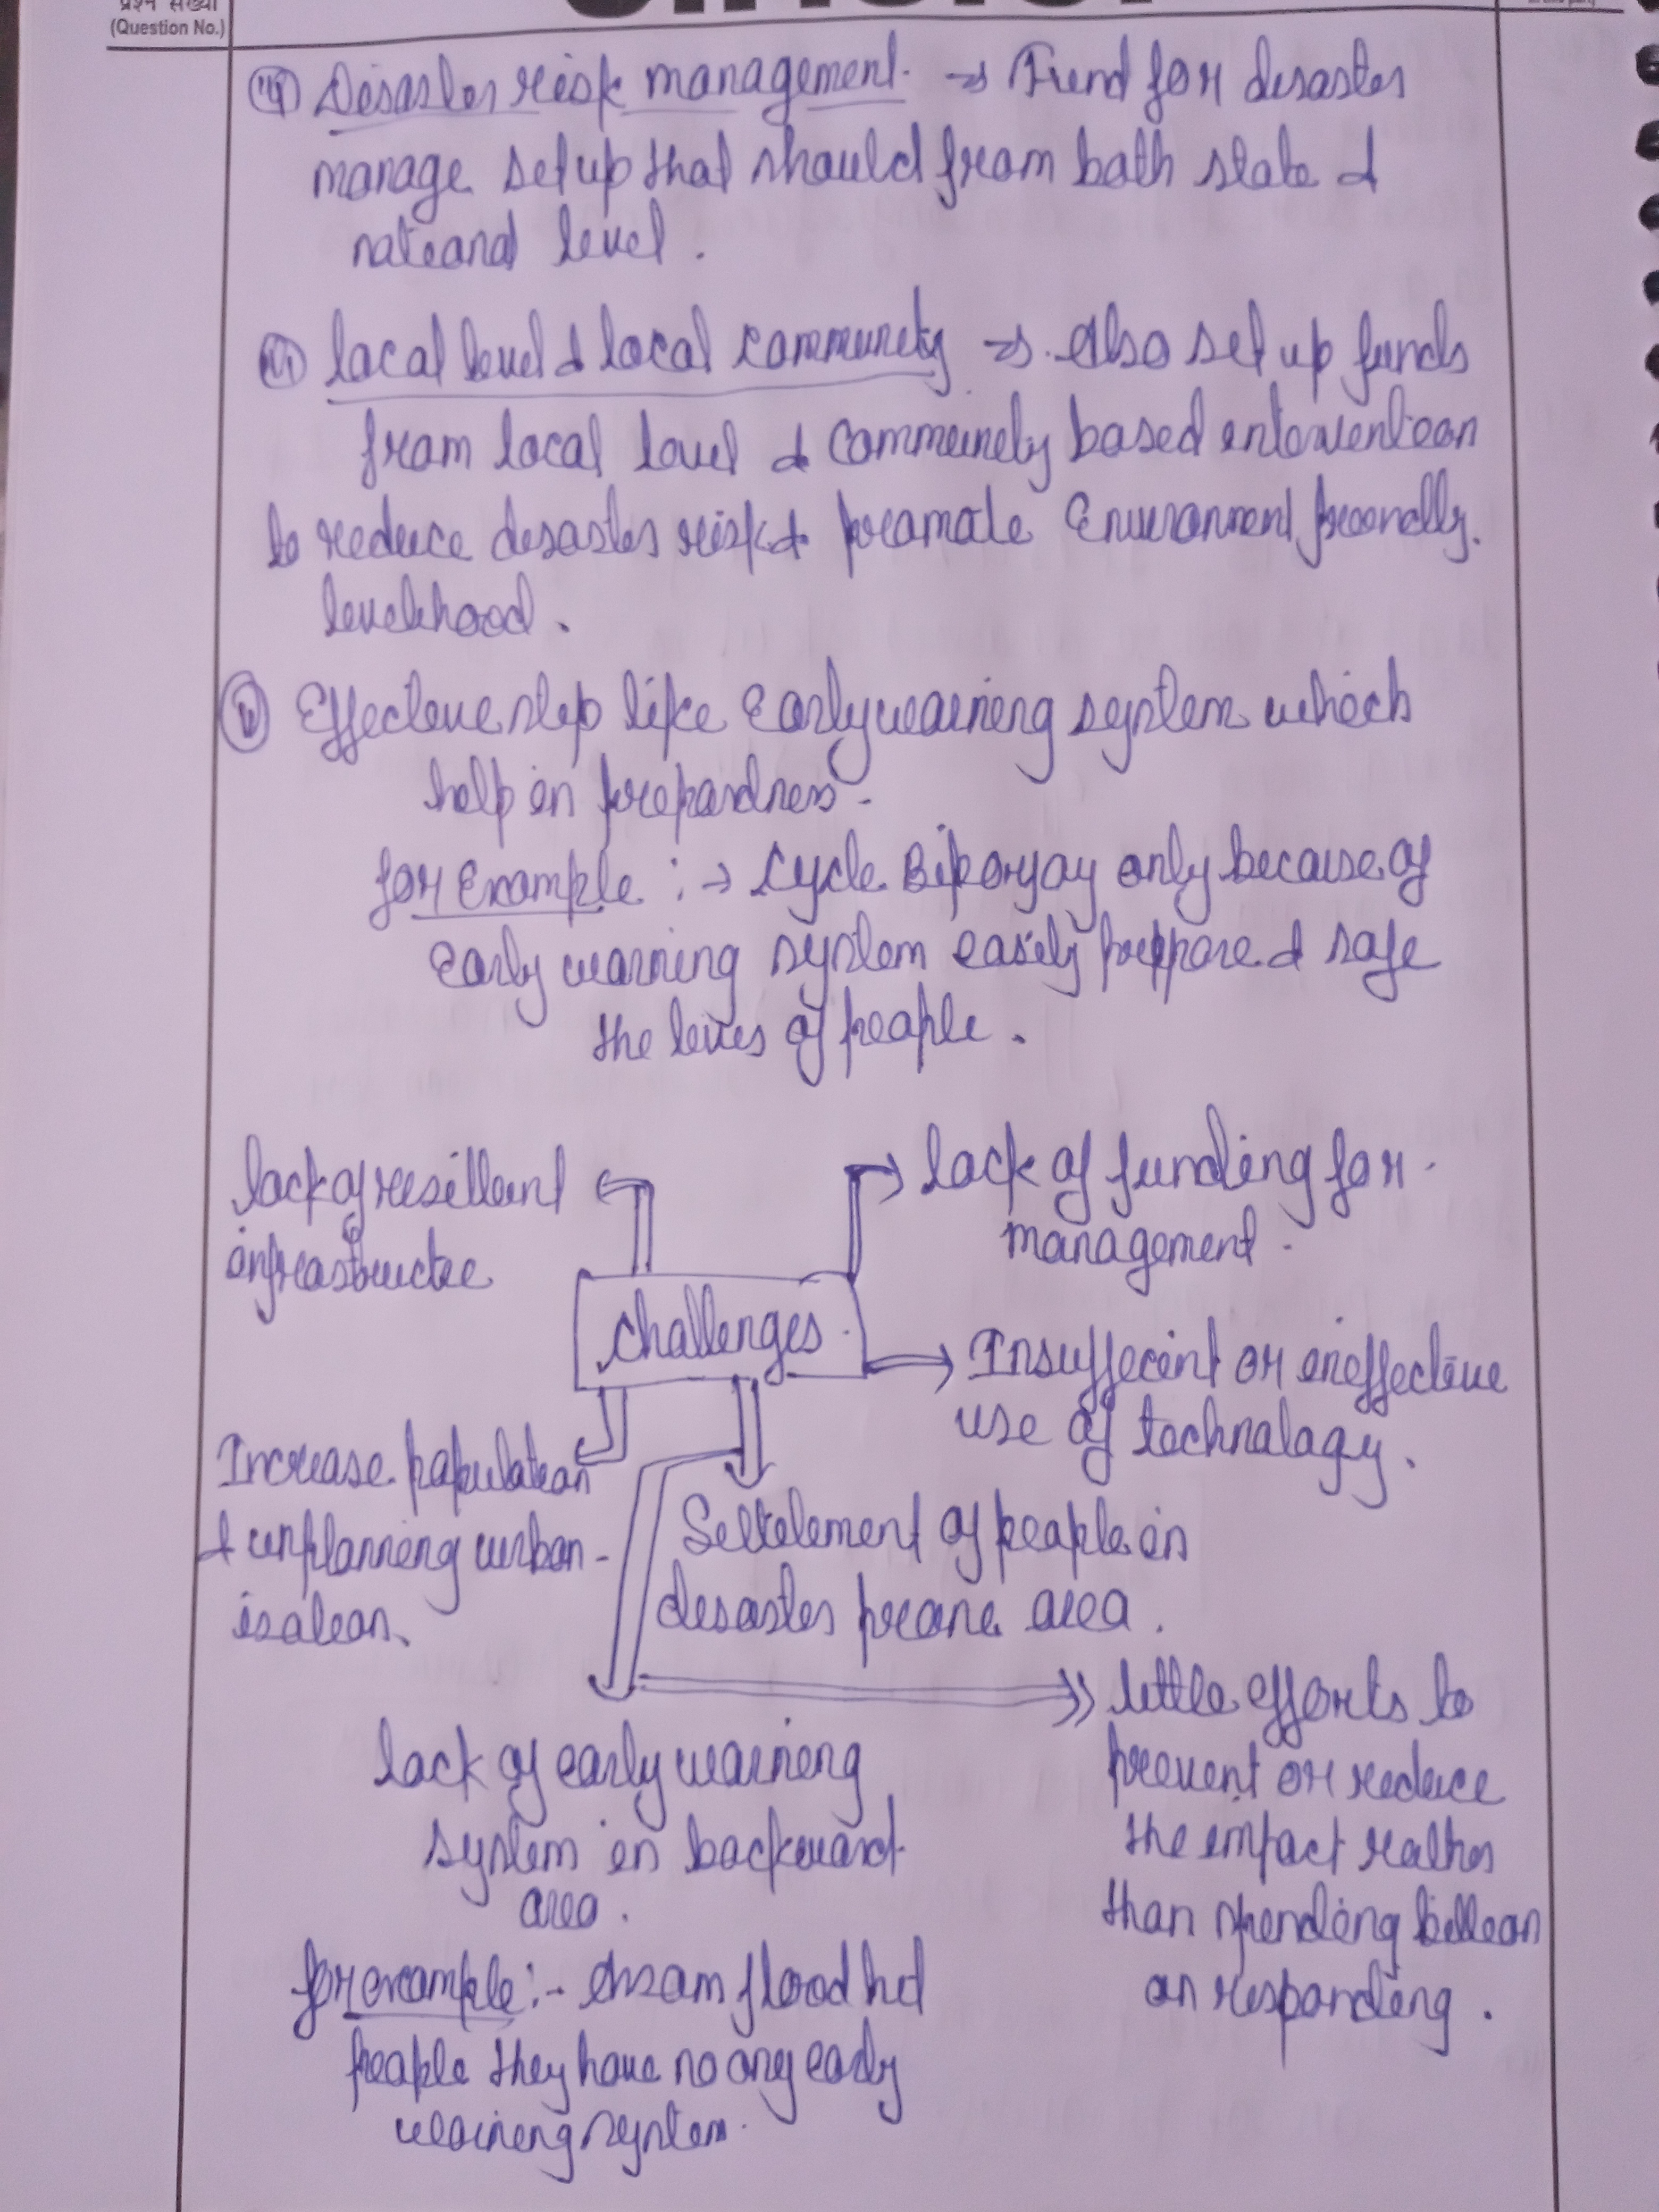 प्रश्न संख्या
(Question No.)
Disaster risk management. → Fund for disaster
manage setup that should from both state &
national level.
local level & local community → Also set up funds
from local level & community based intervention
to reduce disaster risk & promote Environment friendly.
livelihood.
Effective step like Early warning system which
help in prepardness-
for Example :→ Cycle Biporjoy only because of
Early warning system easily preppare & safe
the lives of people.
lack of resillant
infrastructee
lack of funding for
management-
Challenges
Insufficent or ineffective
use of technology.
Increase population
& unplanning urban-
isation.
Settelement of people in
disaster prone area.
lack of early warning
system in backward
area.
for example:- Assam flood hit
people they have no any early
warning system.
little efforts to
prevent or reduce
the impact rather
than spending billion
on responding.